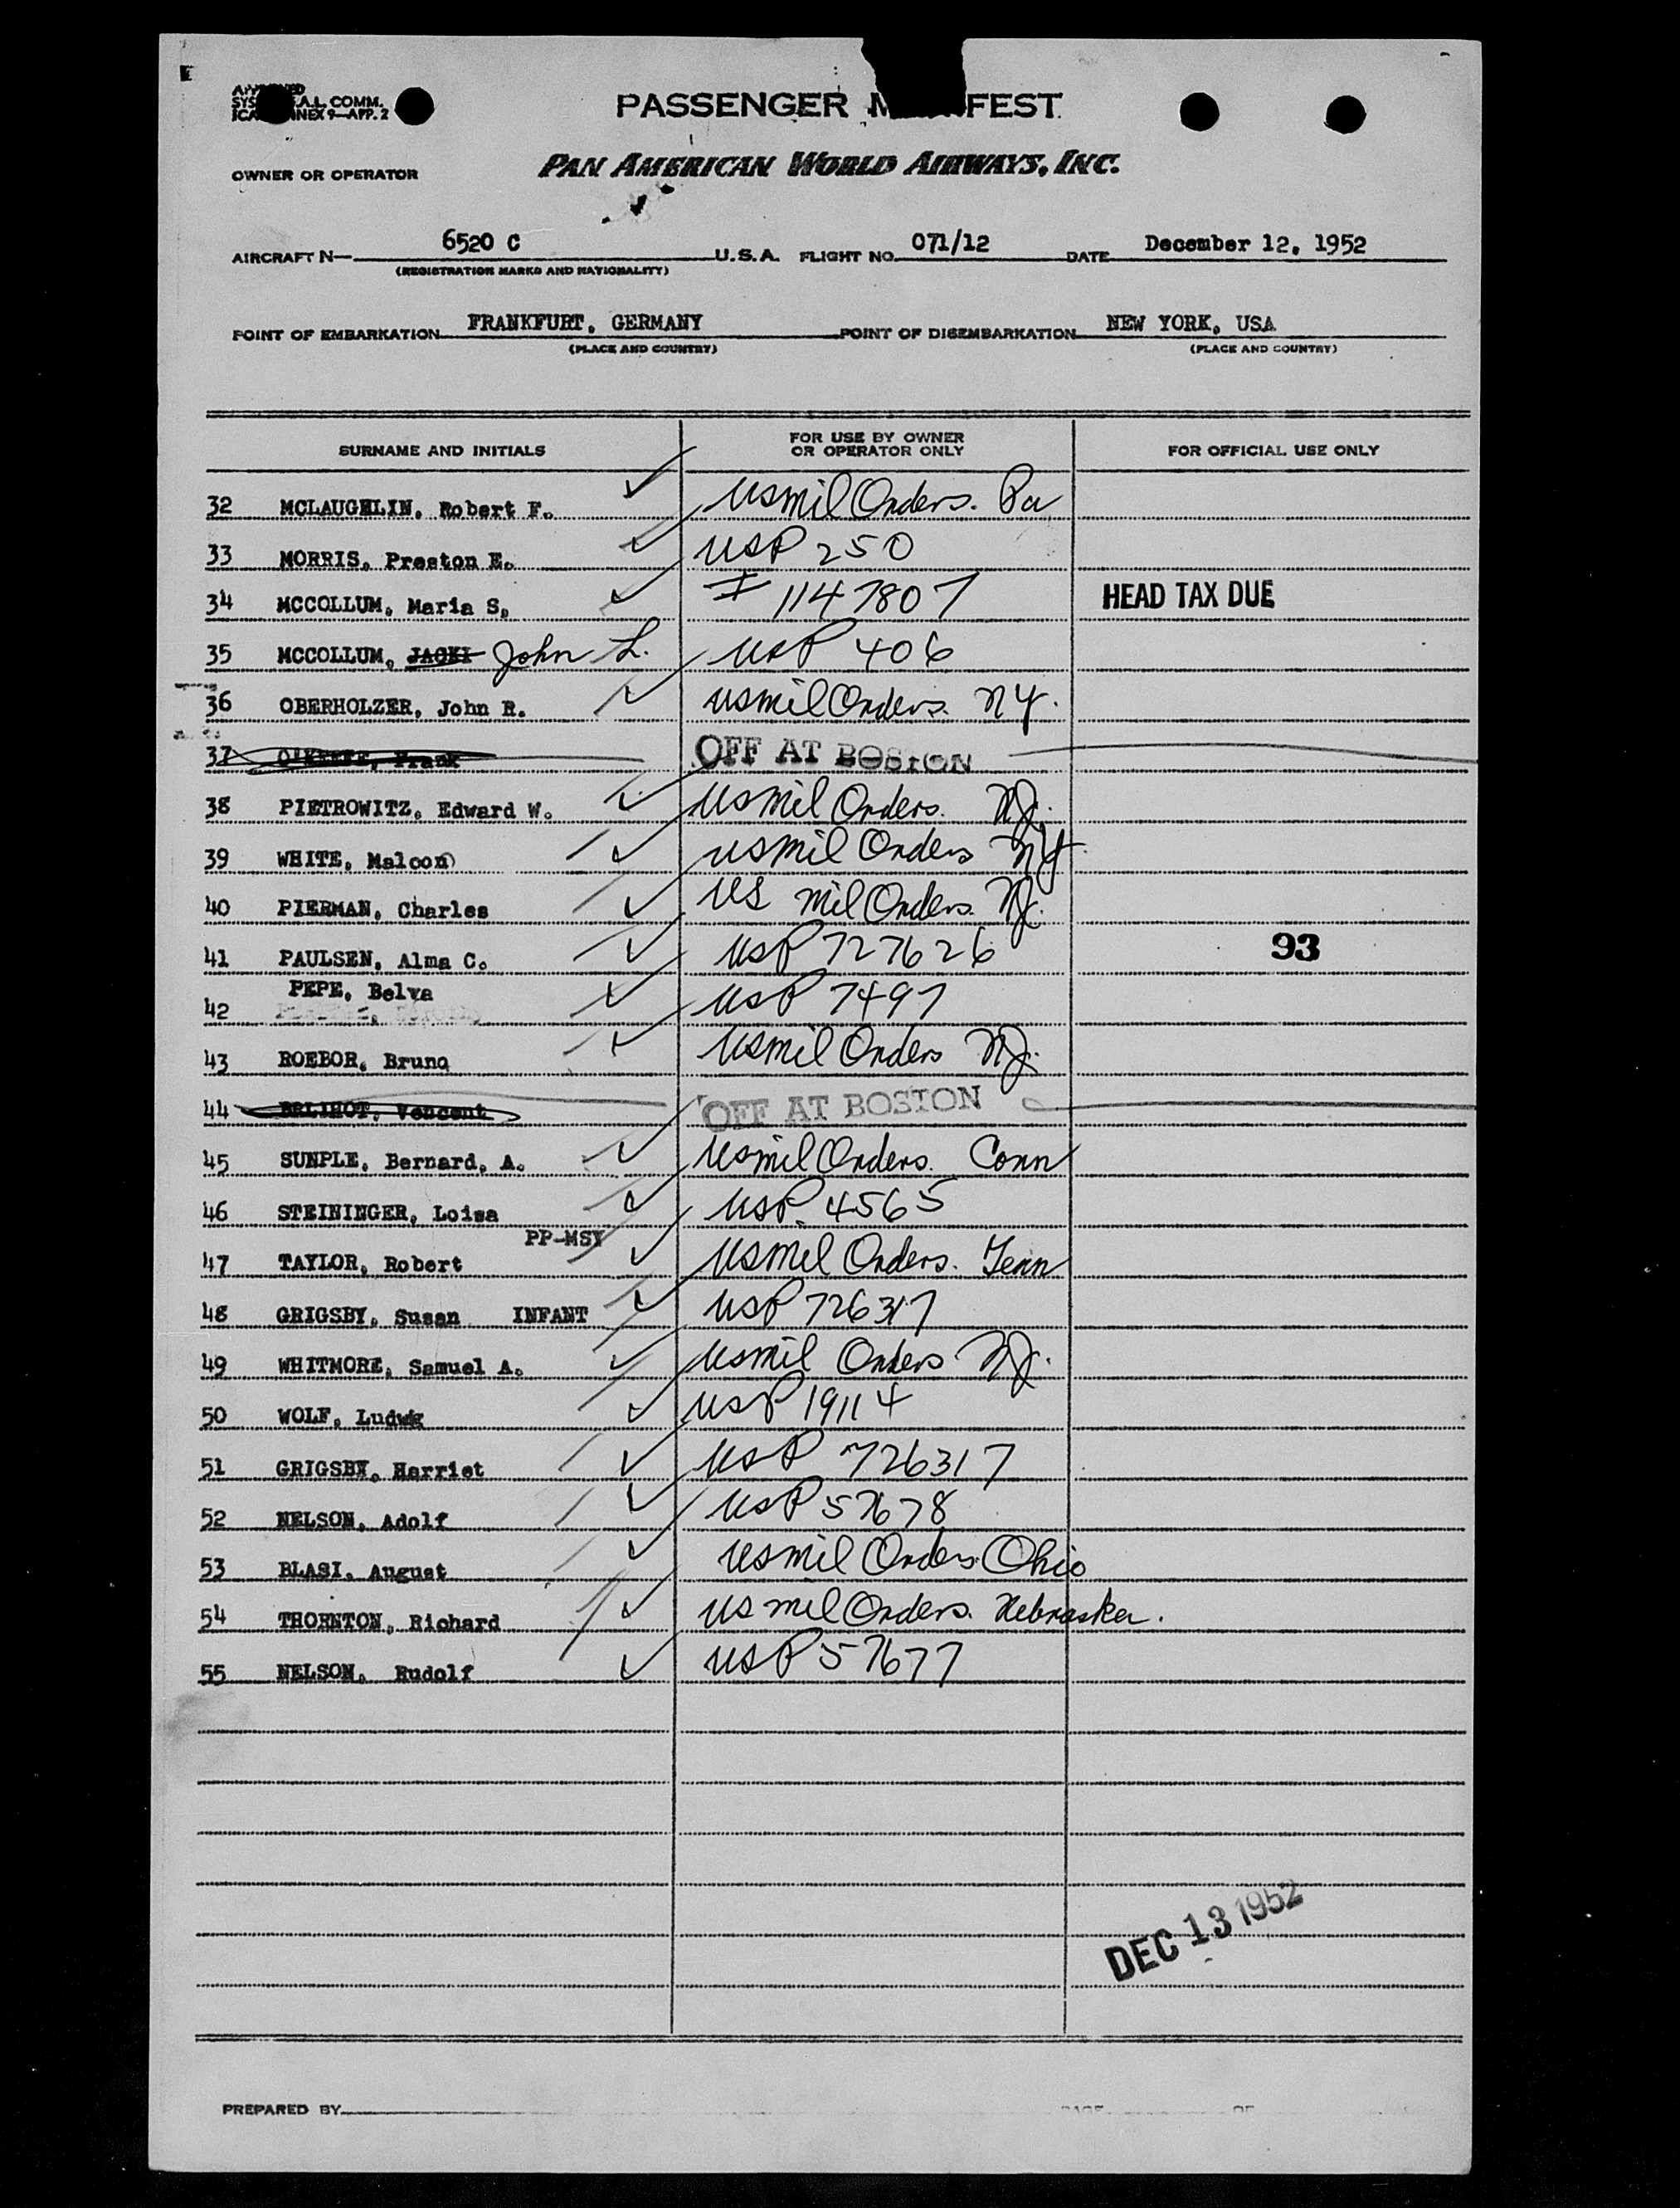 PASSENGER M FEST
A.L. COMM.
NNEX 9—APP. 2
OWNER OR OPERATOR PAN AMERICAN WORLD AIRWAYS, INC.
AIRCRAFT N— 6520 C U.S.A. FLIGHT NO. 071/12 DATE December 12, 1952
(REGISTRATION MARKS AND NATIONALITY)
POINT OF EMBARKATION FRANKFURT, GERMANY POINT OF DISEMBARKATION NEW YORK, USA
(PLACE AND COUNTRY) (PLACE AND COUNTRY)
SURNAME AND INITIALS FOR USE BY OWNER OR OPERATOR ONLY FOR OFFICIAL USE ONLY
32 MCLAUGELIN, Robert F. ✓ USmil Orders. Pa
33 MORRIS, Preston E. ✓ USP 250
34 MCCOLLUM, Maria S. ✓ I 1147807 HEAD TAX DUE
35 MCCOLLUM, JACKI John L. USP 406
36 OBERHOLZER, John R. ✓ usmil Orders. NY.
37 O'KEEFE, Frank OFF AT BOSTON
38 PIETROWITZ, Edward W. ✓ usmil Orders. NJ.
39 WHITE, Malcon ✓ usmil Orders NY.
40 PIERMAN, Charles ✓ US mil Orders. NJ.
41 PAULSEN, Alma C. ✓ USP 727626 93
42 PEPE, Belva ✓ USP 7497
43 ROEBOR, Bruno ✓ usmil Orders NJ.
44 Vencent OFF AT BOSTON
45 SUNPLE, Bernard, A. ✓ usmil Orders. Conn
46 STEININGER, Loisa ✓ USP. 4565
PP-MSY
47 TAYLOR, Robert ✓ usmil Orders. Tenn
48 GRIGSBY, Susan INFANT ✓ USP 726317
49 WHITMORE, Samuel A. ✓ usmil Orders NJ.
50 WOLF, Ludwig ✓ USP 19114
51 GRIGSBY, Harriet ✓ USP 726317
52 NELSON, Adolf ✓ USP 57678
53 BLASI, August ✓ usmil Orders Ohio
54 THORNTON, Richard ✓ us mil Orders. Nebraska.
55 NELSON, Rudolf ✓ USP 57677
DEC 13 1952
PREPARED BY